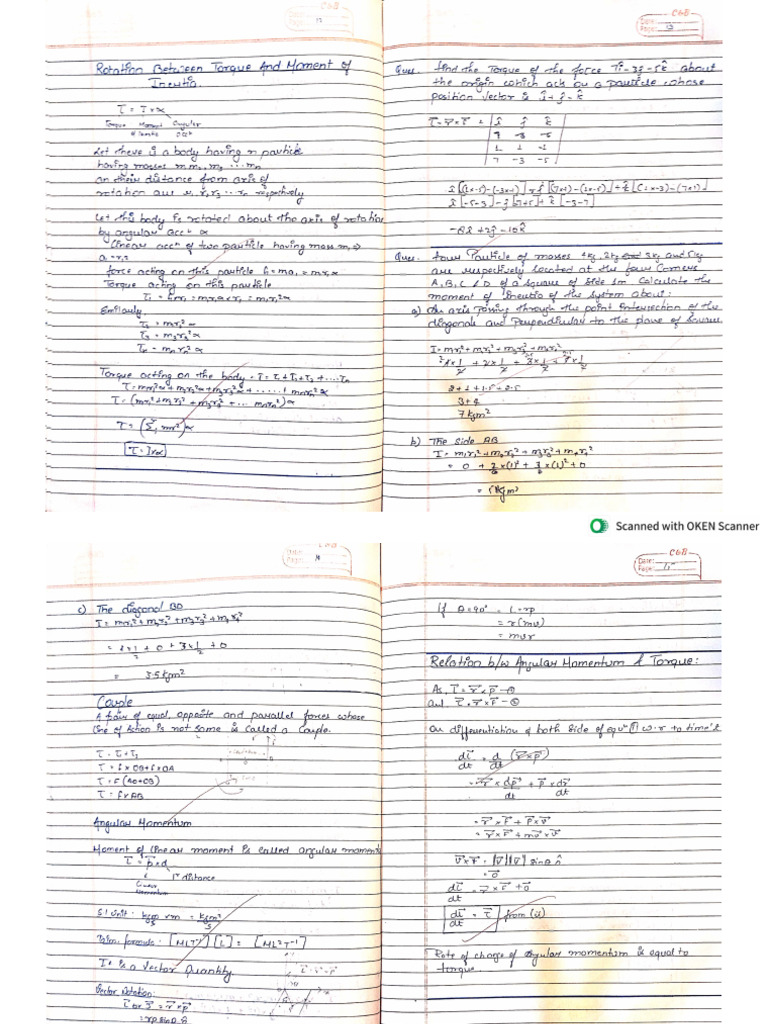 CGB
Date:
Page: 12
Rotation Between Torque And Moment of
Inertia.
τ = I × α
Torque Moment Angular
of Inertia accⁿ
Let there is a body having n particle
having masses m₁ m₂, m₃ ... mₙ
on their distance from axis of
rotation are r₁, r₂ r₃ ... rₙ respectively
Let this body is rotated about the axis of rotation
by angular accⁿ α
Linear accⁿ of two particle having mass m₁ ⇒
a = r₁α
force acting on this particle f₁ = ma₁ = m₁r₁α
Torque acting on this particle
τ₁ = f₁r₁ = m₁r₁α × r₁ = m₁r₁²α
Similarly
τ₂ = m₂r₂²α
τ₃ = m₃r₃²α
τₙ = mₙrₙ²α
Torque acting on the body = τ = τ₁+τ₂+τ₃+....τₙ
τ = m₁r₁²α+m₂r₂²α+m₃r₃²α+......mₙrₙ²α
τ = (m₁r₁²+m₂r₂²+m₃r₃²+... mₙrₙ²)α
τ = (Σ mr²)α
τ = Iα
CGB
Date:
Page: 13
Ques. find the Torque of the force 7î-3ĵ-5k̂ about
the origin which act on a particle whose
position vector is î+ĵ-k̂
τ = r × F = | î ĵ k̂ |
1 1 -1
7 -3 -5
î[(1×-5)-(-3×-1)]
î[-5-3]-ĵ[-5+7]+k̂[-3-7]
-8î+2ĵ-10k̂
Ques. four Particle of masses 4kg, 2kg and 3kg and 5kg
are respectively located at the four Corners
A, B, C & D of a square of side 1m Calculate the
moment of Inertia of the system about:
a) An axis Passing through the point intersection of the
diagonals and Perpendicular to the plane of square
I = m₁r₁²+m₂r₂²+m₃r₃²+m₄r₄²
2+1+1.5+2.5
3+4
7kgm²
b) The side AB
I = m₁r₁²+m₂r₂²+m₃r₃²+m₄r₄²
Scanned with OKEN Scanner
Date:
Page: 14
c) The diagonal BD
I = m₁r₁²+m₂r₂²+m₃r₃²+m₄r₄²
+ 0 + 3×1/2 + 0
= 3.5kgm²
Couple
A pair of equal, opposite and parallel forces whose
line of action is not same is called a Couple.
τ = τ₁+τ₂
τ = f×OB+f×OA
τ = F(AO+OB)
τ = f×AB
Angular Momentum
Moment of linear moment is called angular momentum
Linear
momentum
distance
S.I unit:
Dim. formula: [MLT⁻¹][L] = [ML²T⁻¹]
It is a Vector Quantity
Vector Notation:
CGB
Date:
Page:
If θ=90° = L=rp
= r(mv)
= mvr
Relation b/w Angular Momentum & Torque:
As, L = r × p - ①
And τ = r × F - ②
On differentiation of both side of equⁿ ① w.r to time 't'
dL/dt = d/dt (r×p)
= r × dp/dt + p × dr/dt
= r×F + p×v
= r×F + mv×v
v×v = |v||v| sinθ n̂
= 0
dL/dt = r×F+0
dL/dt = τ from (ii)
Rate of change of angular momentum is equal to
torque.